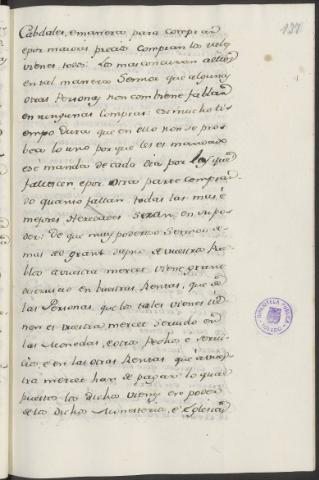 137
Cabdales, e manera para comprar
e por maiores precios compran los tales
vienes todos: los mas comarcan a ellos
en tal manera Sennor que algunas
otras Personas non combiene fallar
en ningunas comprar: es mucho ti-
empo dura que en ello non se pro-
bea lo uno por que les es mandado
e se manda de cada dia por los que
fallescen e por otra parte compran-
do quanto fallan todas las mas e
mejores Heredades seran en su po-
der: de que muy poderoso Sennor a-
mas del grant dapno de vuestros Pue-
blos a vuestra merced viene grant
deservicio en vuestras Rentas, que de
las Personas que los tales vienes
non es vuestra merced servido en
las Monedas, e otros Pechos e servi-
cios, e en las otras Rentas que a vues-
tra merced han de pagar lo qual
puestos los dichos vienes en poder
de los dichos Monesterios, e Eglesias
BIBLIOTECA PUBLICA
TOLEDO